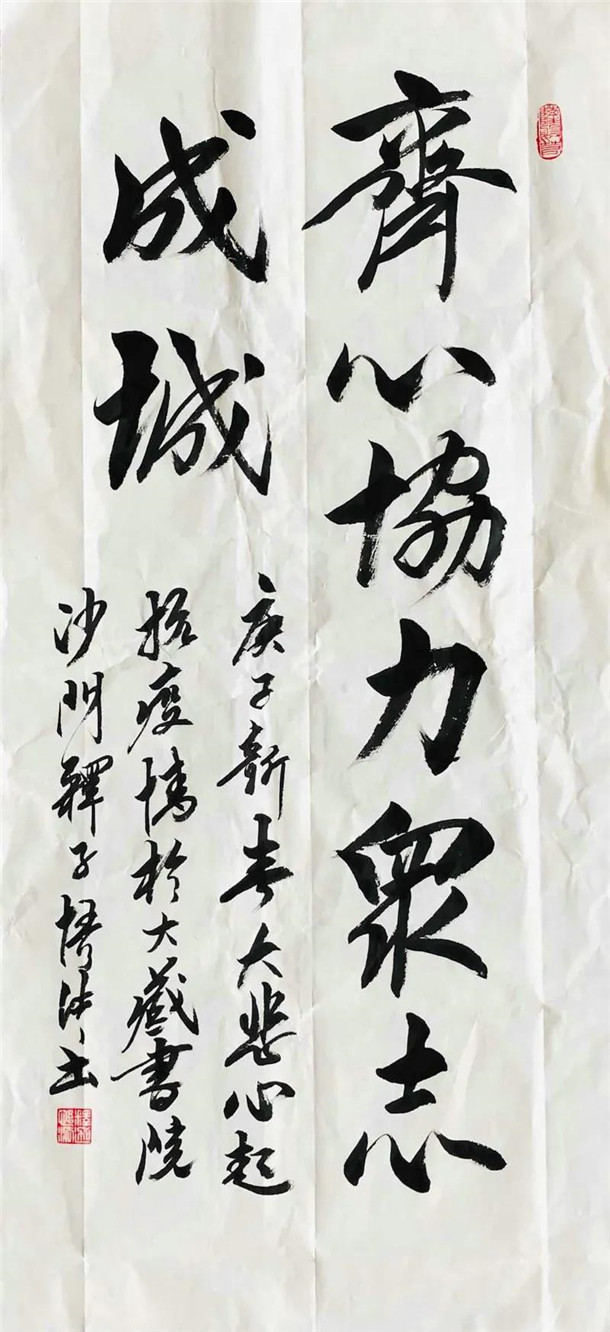 齊心協力眾志
成城
庚子新春大悲心起
抗疫情於大藏書院
沙門釋子
書